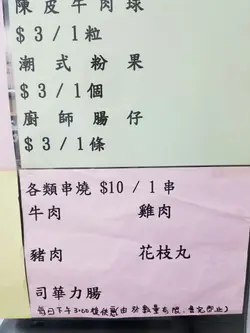 陳皮牛肉球
$3/1粒
潮式粉果
$3/1個
廚師腸仔
$3/1條
各類串燒 $10/1串
牛肉 雞肉
豬肉 花枝丸
司華力腸
每日下午3:00後供應(由於數量有限，售完即止)